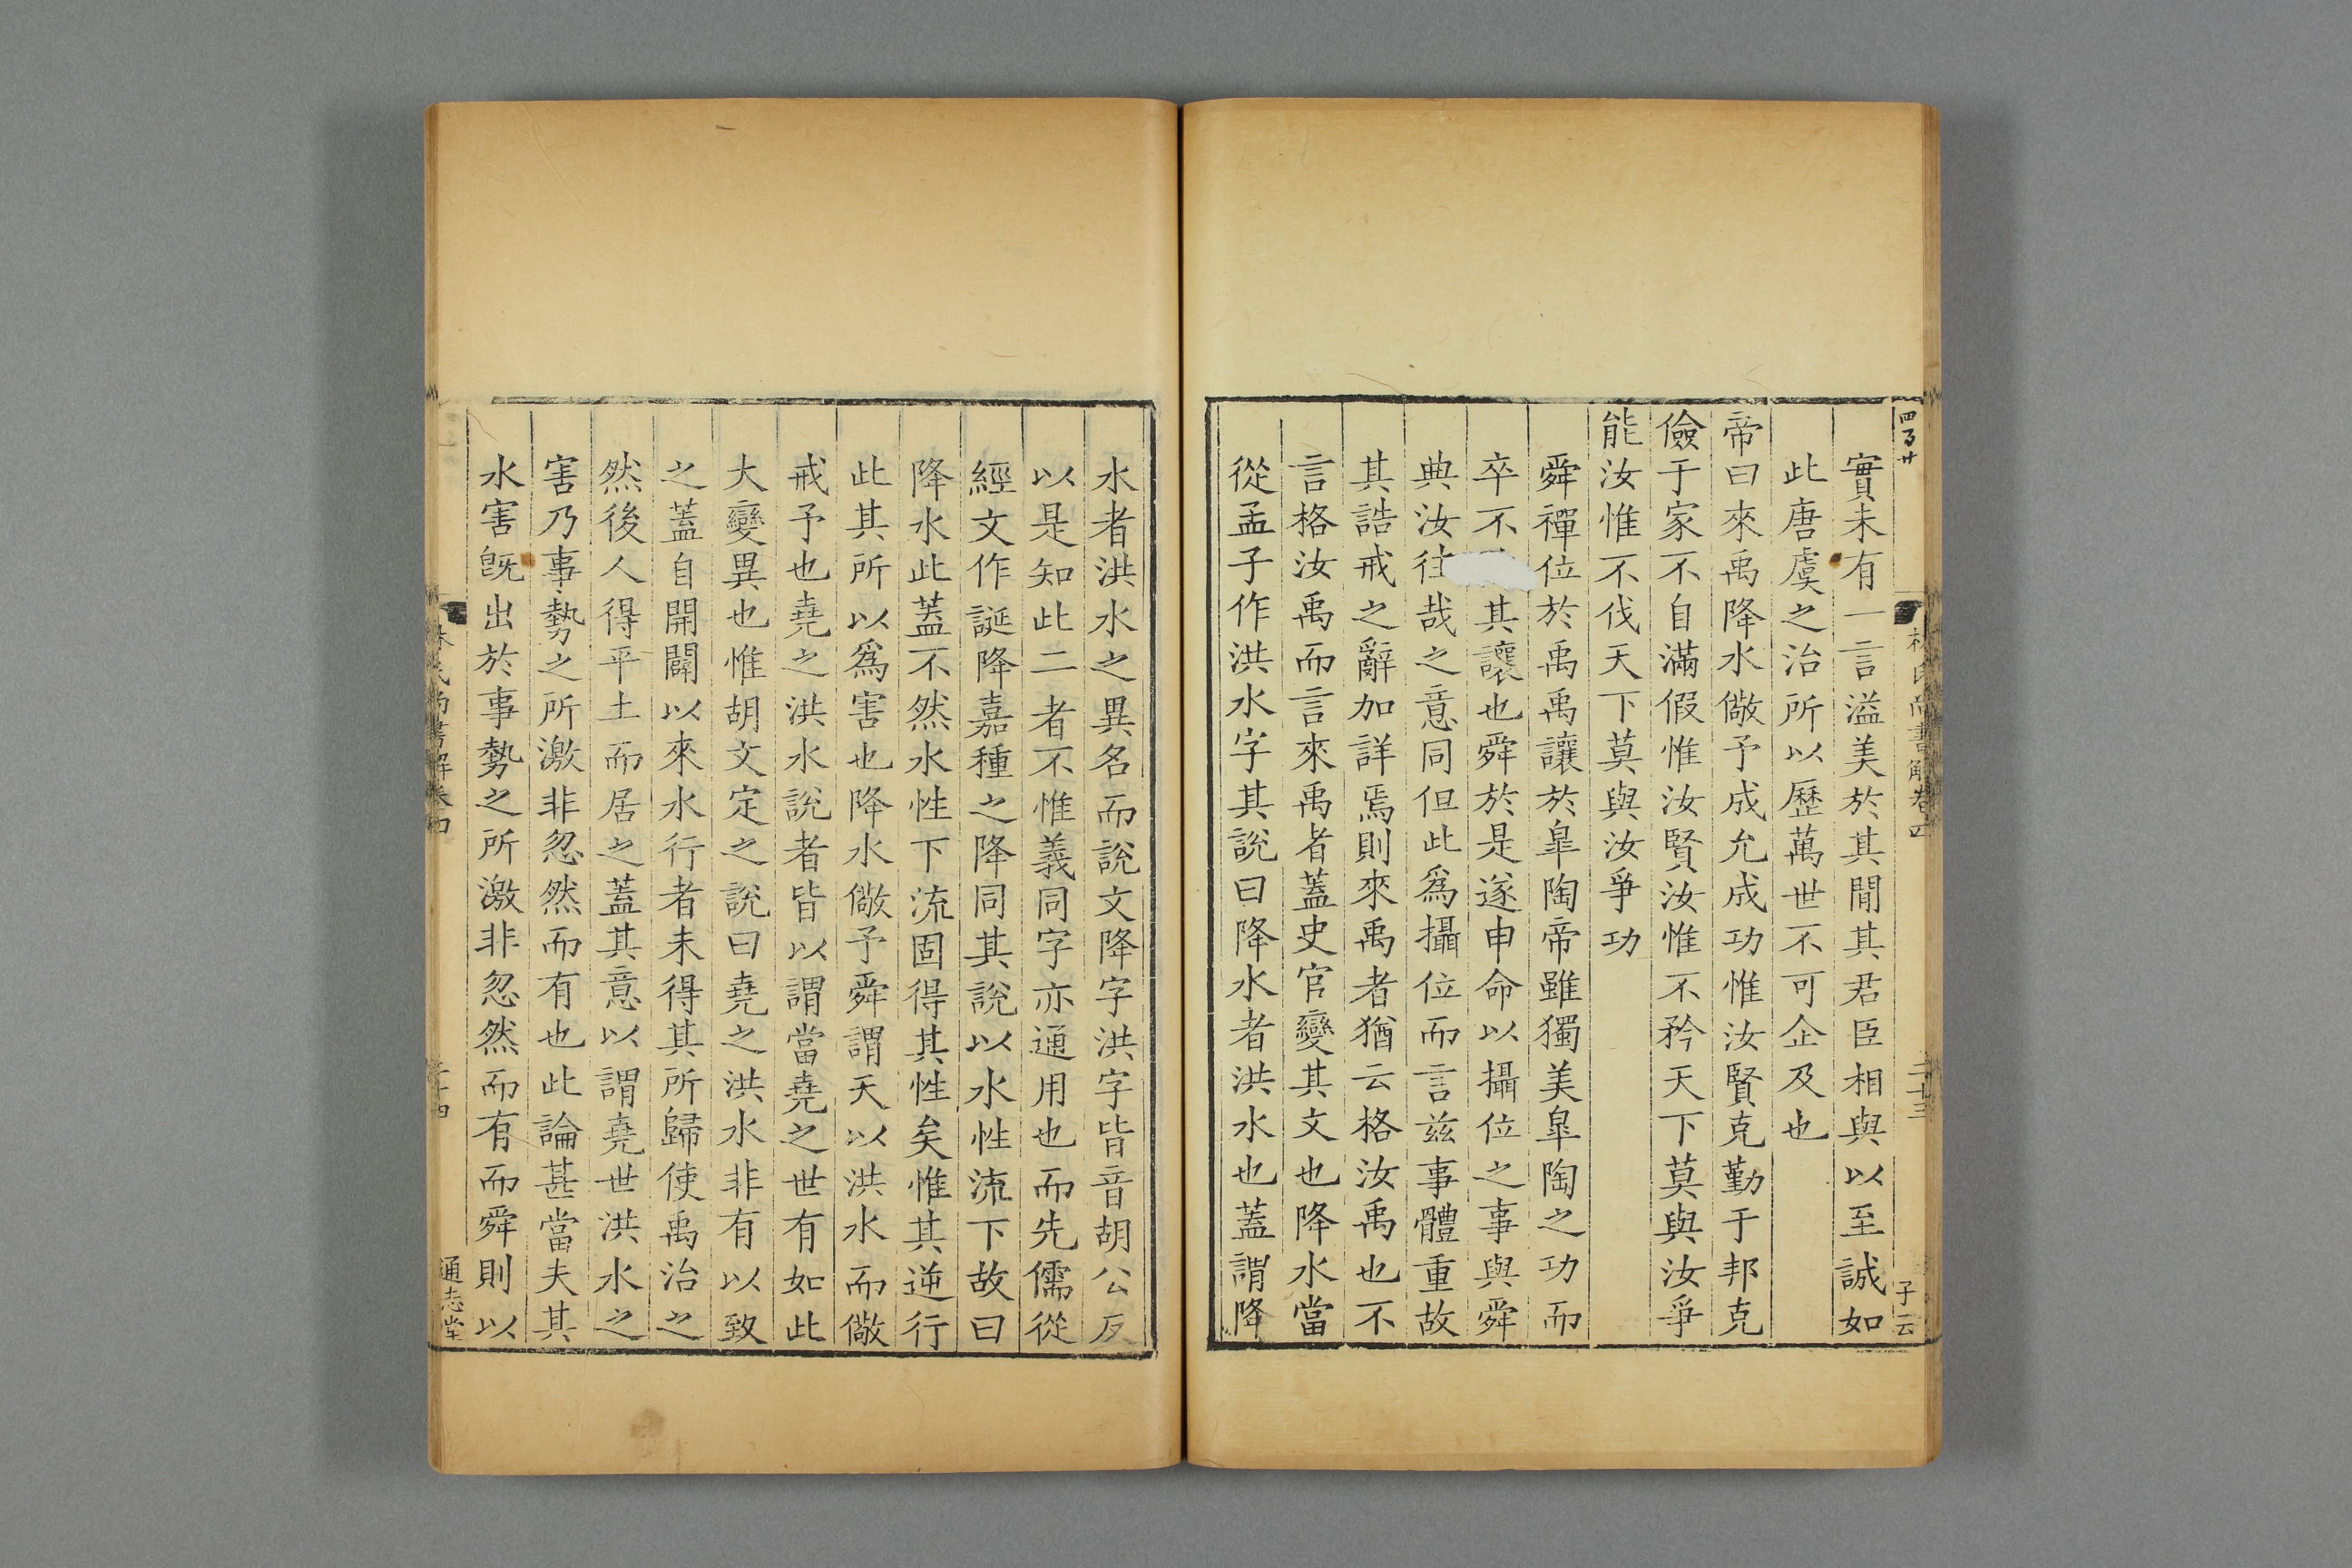 實未有一言溢美於其間其君臣相與以至誠如
此唐虞之治所以歷萬世不可企及也
帝曰來禹降水儆予成允成功惟汝賢克勤于邦克
儉于家不自滿假惟汝賢汝惟不矜天下莫與汝爭
能汝惟不伐天下莫與汝爭功
舜禪位於禹禹讓於皐陶帝雖獨美皐陶之功而
卒不其讓也舜於是遂申命以攝位之事與舜
典汝往哉之意同但此爲攝位而言兹事體重故
其誥戒之辭加詳焉則來禹者猶云格汝禹也不
言格汝禹而言來禹者蓋史官變其文也降水當
從孟子作洪水字其說曰降水者洪水也蓋謂降
水者洪水之異名而說文降字洪字皆音胡公反
以是知此二者不惟義同字亦通用也而先儒從
經文作誕降嘉種之降同其說以水性流下故曰
降水此蓋不然水性下流固得其性矣惟其逆行
此其所以爲害也降水儆予舜謂天以洪水而儆
戒予也堯之洪水說者皆以謂當堯之世有如此
大變異也惟胡文定之說曰堯之洪水非有以致
之蓋自開闢以來水行者未得其所歸使禹治之
然後人得平土而居之蓋其意以謂堯世洪水之
害乃事勢之所激非忽然而有也此論甚當夫其
水害旣出於事勢之所激非忽然而有而舜則以
林氏尚書解卷四
二十三
子云
林氏尚書解卷四
二十四
通志堂